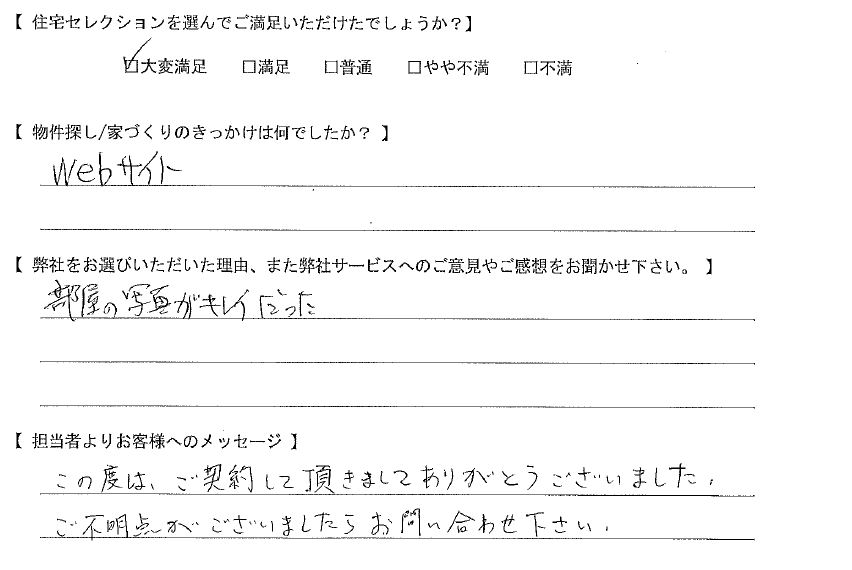 【 住宅セレクションを選んでご満足いただけたでしょうか？】
☑大変満足 □満足 □普通 □やや不満 □不満
【 物件探し/家づくりのきっかけは何でしたか？ 】
Webサイト
【 弊社をお選びいただいた理由、また弊社サービスへのご意見やご感想をお聞かせ下さい。 】
部屋の写真がキレイだった
【 担当者よりお客様へのメッセージ 】
この度は、ご契約して頂きましてありがとうございました。
ご不明点がございましたらお問い合わせ下さい。